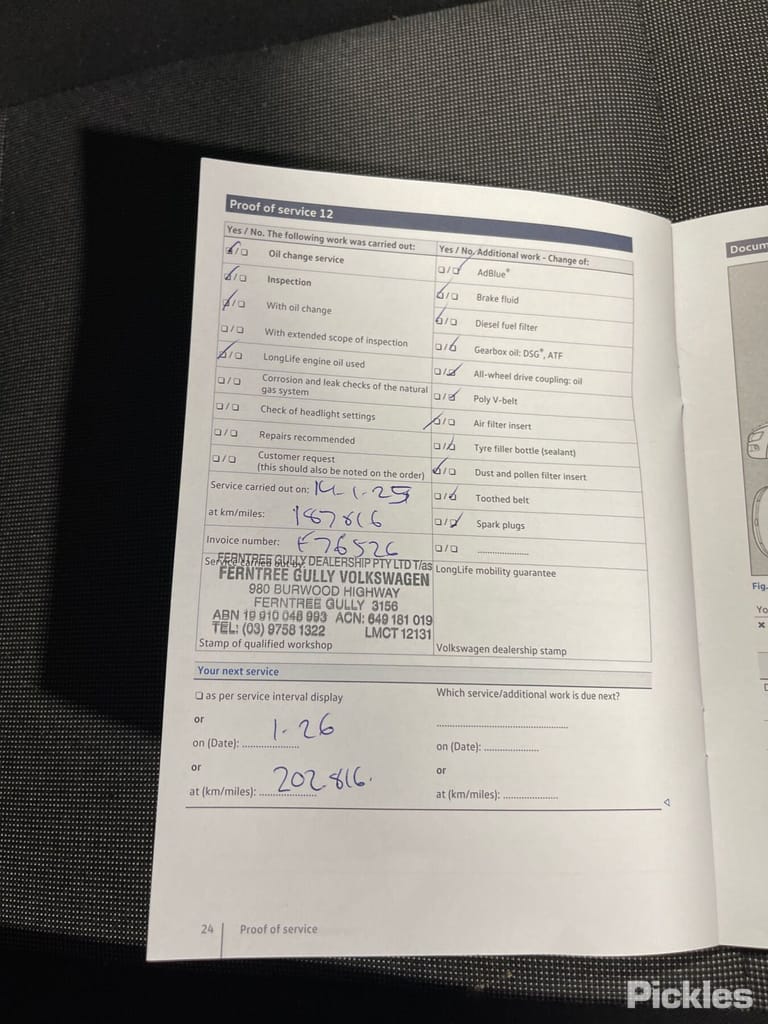 Proof of service 12
Yes / No. The following work was carried out:
Oil change service
Inspection
With oil change
With extended scope of inspection
LongLife engine oil used
Corrosion and leak checks of the natural
gas system
Check of headlight settings
Repairs recommended
Customer request
(this should also be noted on the order)
Service carried out on: 14-1-25
at km/miles: 187816
Invoice number: F76526
Service carried out by:
FERNTREE GULLY DEALERSHIP PTY LTD T/as
FERNTREE GULLY VOLKSWAGEN
980 BURWOOD HIGHWAY
FERNTREE GULLY 3156
ABN 19 910 048 993 ACN: 649 181 019
TEL: (03) 9758 1322 LMCT 12131
Stamp of qualified workshop
Yes / No. Additional work - Change of:
AdBlue®
Brake fluid
Diesel fuel filter
Gearbox oil: DSG®, ATF
All-wheel drive coupling: oil
Poly V-belt
Air filter insert
Tyre filler bottle (sealant)
Dust and pollen filter insert
Toothed belt
Spark plugs
LongLife mobility guarantee
Volkswagen dealership stamp
Your next service
as per service interval display
or
on (Date): 1.26
or
at (km/miles): 202816.
Which service/additional work is due next?
on (Date):
or
at (km/miles):
24 Proof of service
Docum
Fig.
Yo
Pickles